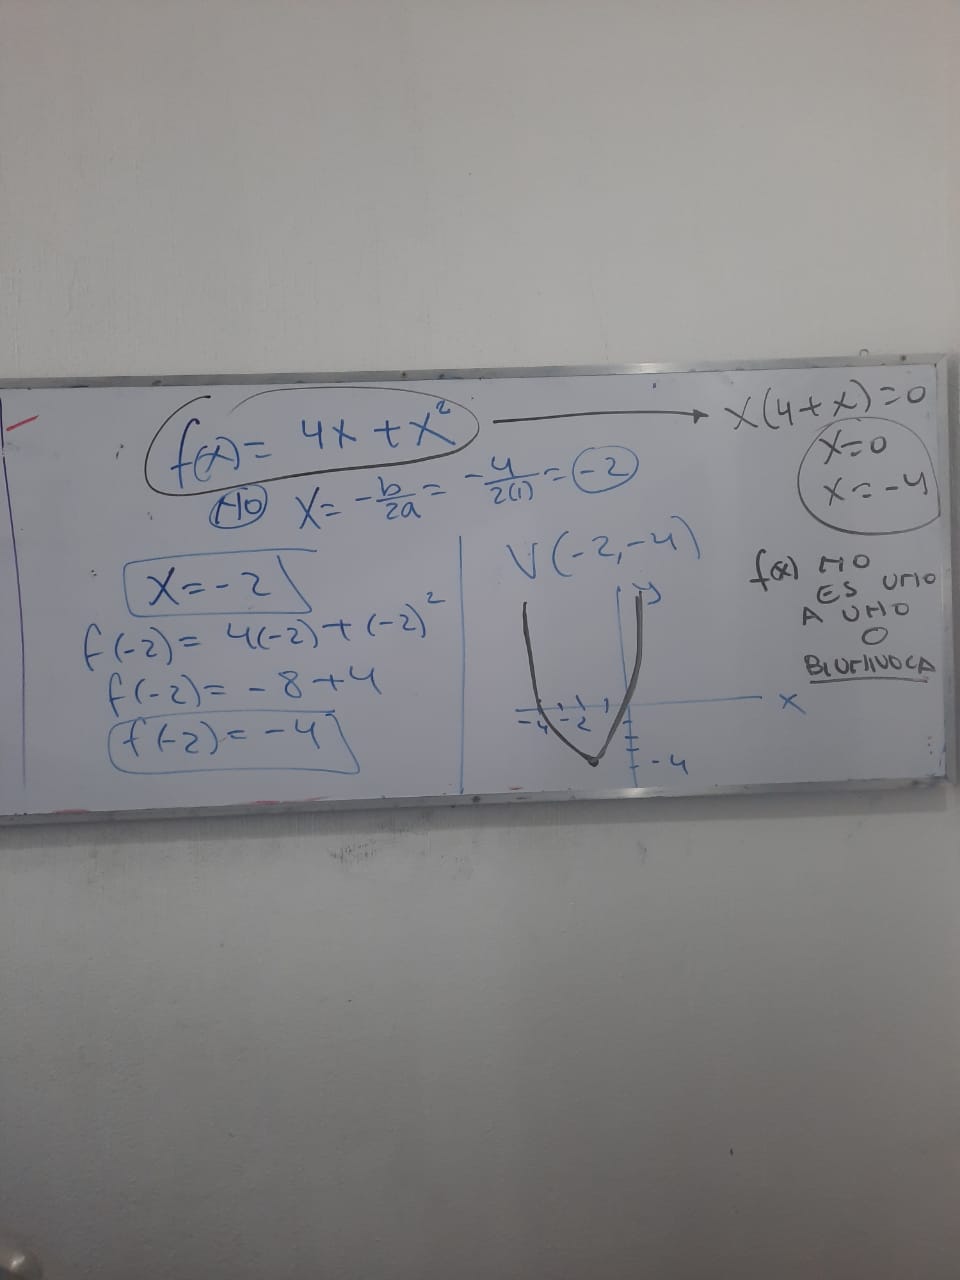 f(x)= 4x + x²
x(4+x)=0
x=0
x=-4
NO x= -b/2a = -4/2(1) = -2
x=-2
f(-2)= 4(-2)+(-2)²
f(-2)= -8+4
f(-2)= -4
V(-2,-4)
y
x
-4 -2
-4
f(x) NO
ES UNO
A UNO
O
BIUNIVOCA